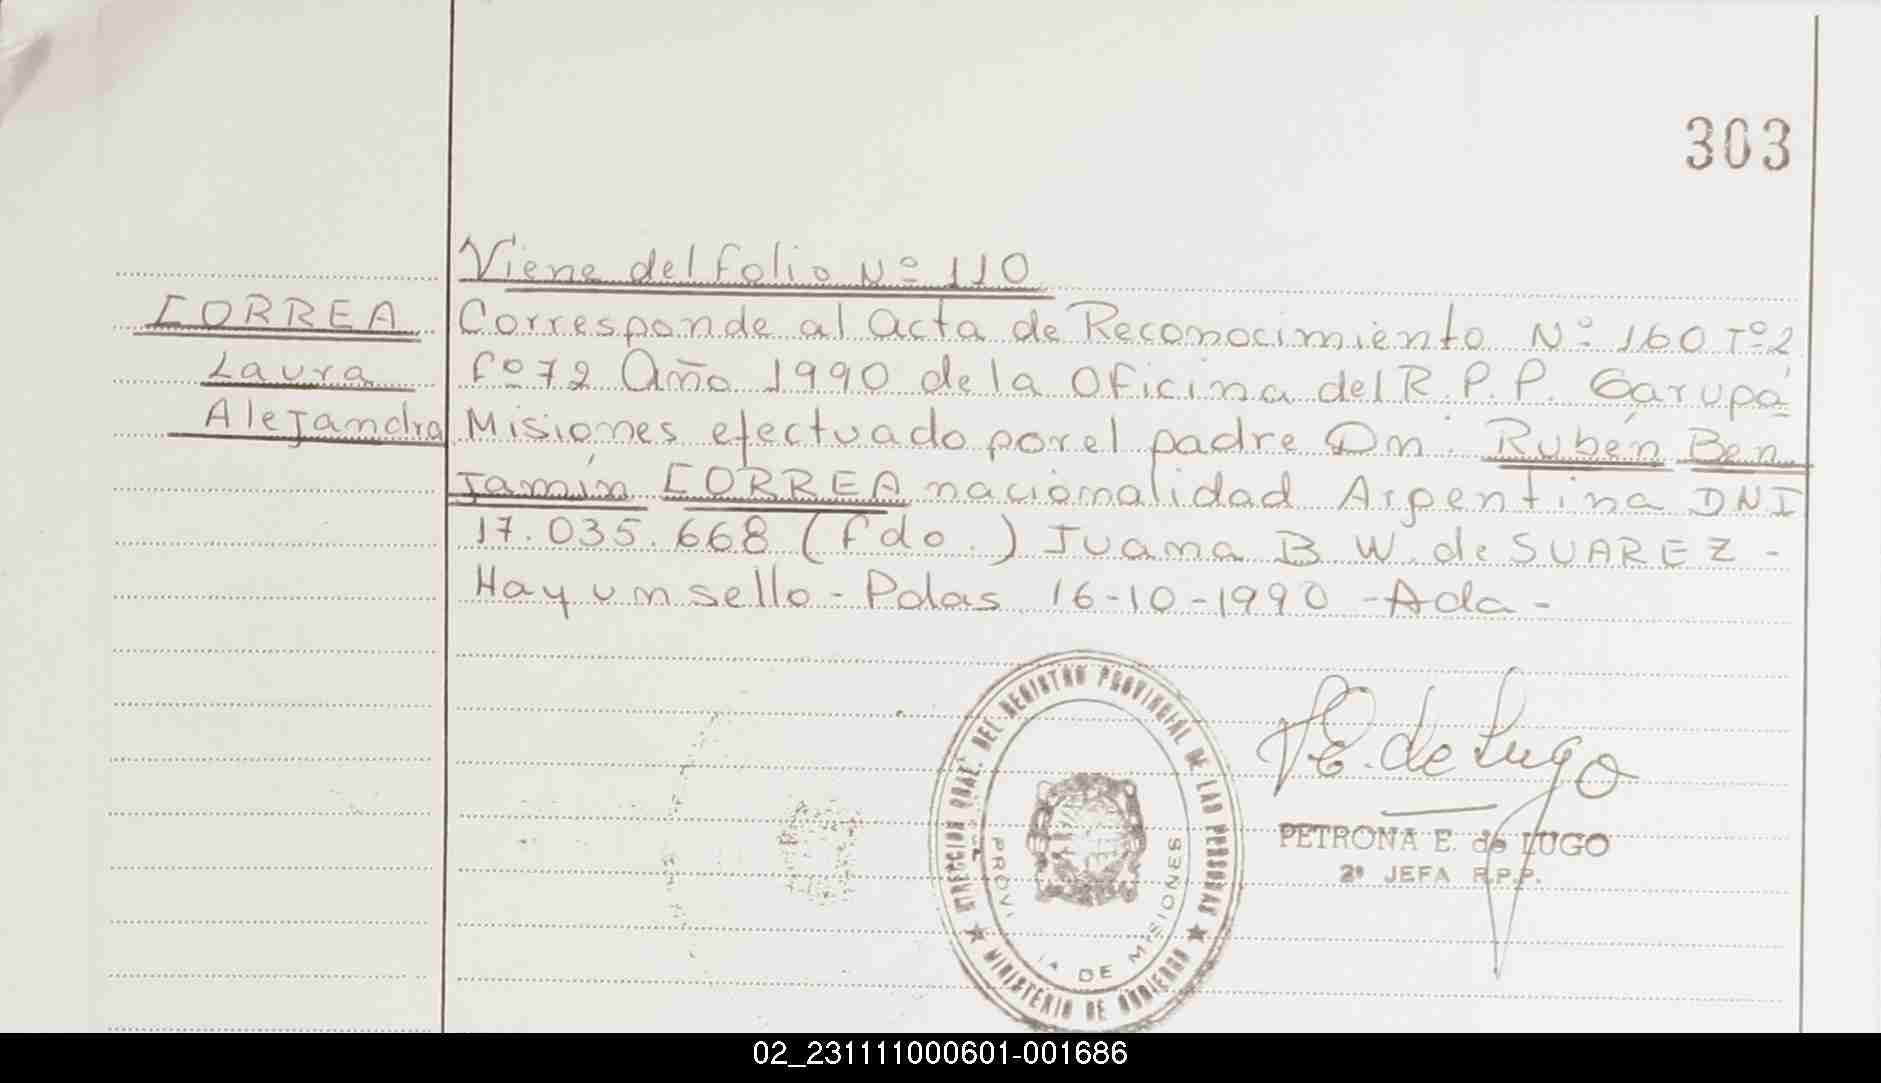 303
Viene del folio Nº 110
CORREA Corresponde al Acta de Reconocimiento Nº 160 Tº 2
Laura fº 72 Año 1990 de la Oficina del R.P.P. Garupá
Alejandra Misiones efectuado por el padre Dn. Rubén Ben
jamín CORREA nacionalidad Argentina DNI
17.035.668 (fdo.) Juana B. W. de SUAREZ -
Hay un sello - Pdas 16-10-1990 - Ada -
DIRECCION GRAL. DEL REGISTRO PROVINCIAL DE LAS PERSONAS
MINISTERIO DE GOBIERNO
DE MISIONES
E. de Lugo
PETRONA E. de LUGO
2º JEFA R.P.P.
02_231111000601-001686